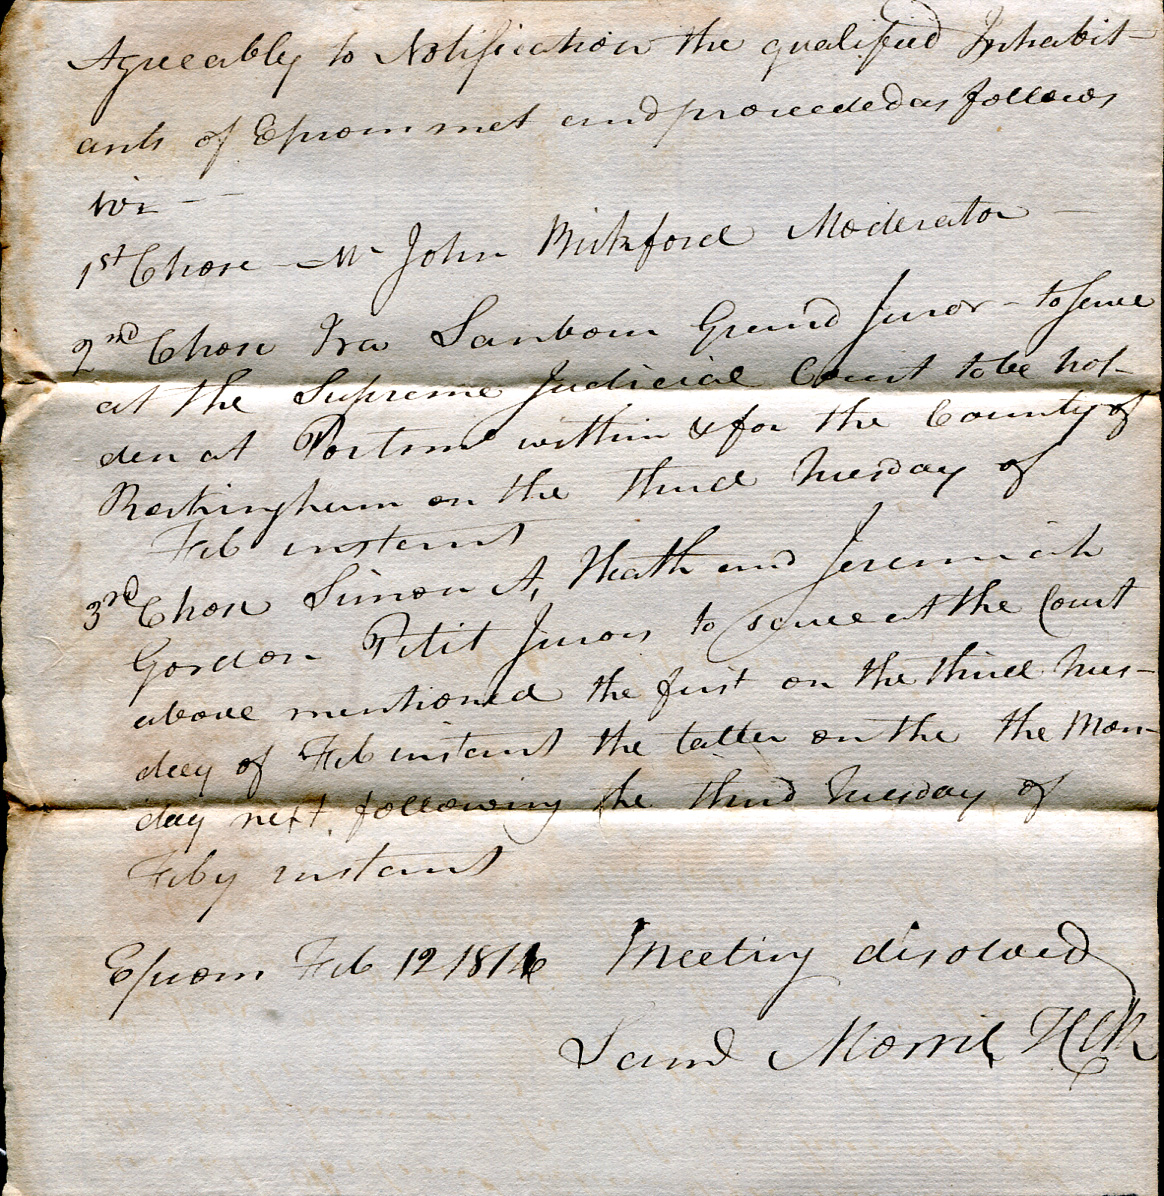 Agreeably to Notification the qualified Inhabit-
ants of Epsom met and proceeded as follows
viz -
1st Chose - Mr John Bickford Moderator -
2nd Chose Ira Sanborn Grand Juror - to serve
at the Supreme Judicial Court to be hol-
den at Portsmo within & for the County of
Rockingham on the third Tuesday of
Feb instant
3rd Chose Simon A, Heath and Jeremiah
Gordon Petit Jurors to serve at the Court
above mentioned the first on the third Tues-
day of Feb instant the latter on the the Mon-
day next following the third Tuesday of
Feby instant
Epsom Feb 12 1816 Meeting disolved
Saml Morril TClk